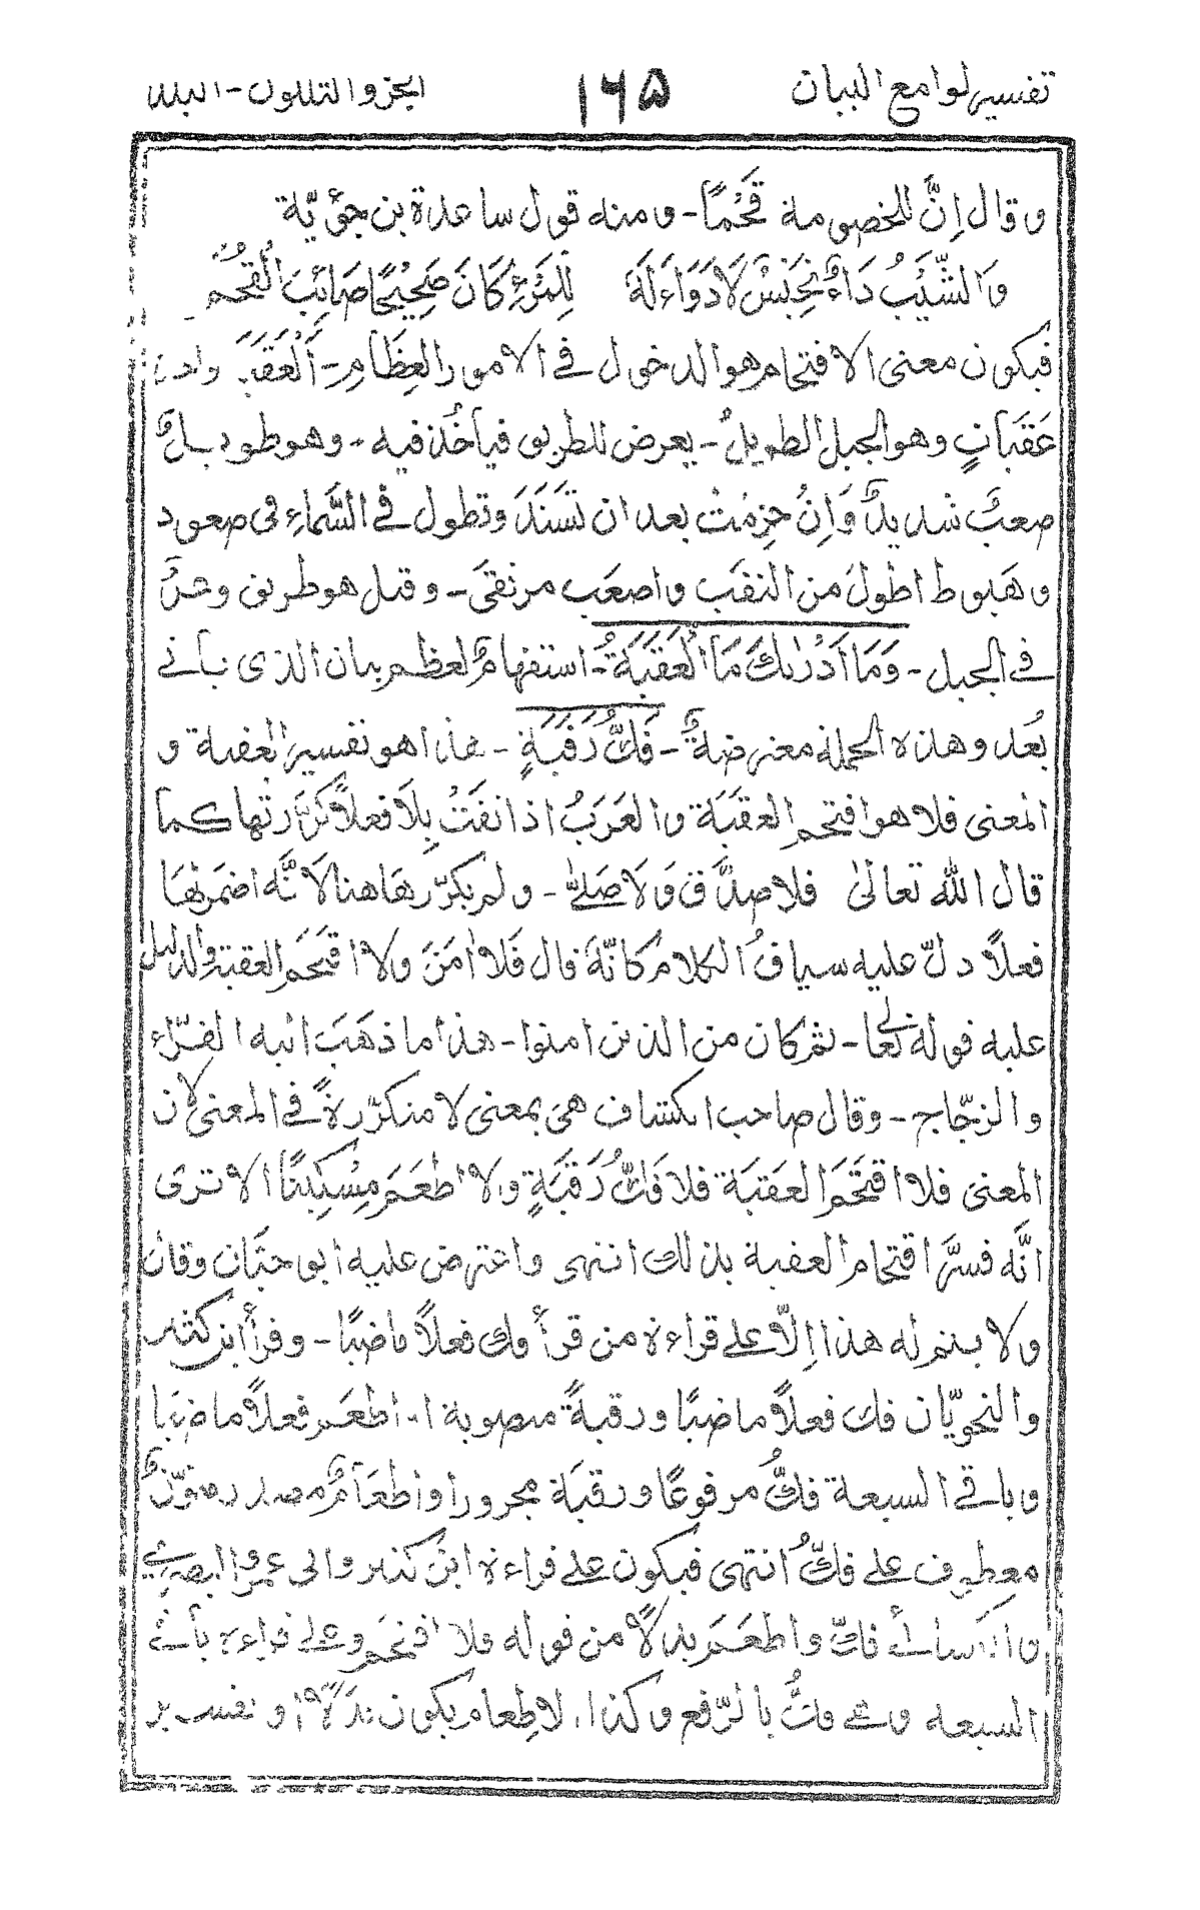 تفسير لوامع البيان ١٦٥ الجزء الثلثون - البلد
وقال إنّ للخصومة قُحَمًا - ومنه قول ساعدة بن جؤيّة
وَالشَّيْبُ دَاءٌ نَجِيسٌ لَا دَوَاءَ لَهُ لِلْمَرْءِ كَانَ صَحِيْحًا صَائِبَ الْقُحَمِ
فيكون معنى الاقتحام هو الدخول فى الامور العِظَامِ - اَلْعَقَبَةَ
عَقَبَاتٍ وهو الجبل الطويلُ - يعرض للطريق فيأخُذ فيه - وهو طويلٌ
صعبٌ شديدٌ وَاِنْ خزِمتْ بعد ان تَسْنَدَ وتطول فى السَّمَاءِ فى صعود
وهبوط اطولَ من النقب واصعَب مرتقىً - وقيل هو طريق وعرٌ
فى الجبل - وَمَا اَدْرٰىكَ مَا الْعَقَبَةُ - استفهامٌ لعظم بيان الذى يأتى
بعُد وهذه الجملة معترضةٌ - فَكُّ رَقَبَةٍ - هذا هو تفسير العقبة و
المعنى فلا هو اقتحم العقبَة والعَرَبُ اذا نفَتْ بِلَا فعلاً كَرَّرَتها كما
قال اللّٰه تعالىٰ فلا صدَّق وَلا صَلّٰى - ولم يكرّرها هاهنا لاَنَّه اضمَرلهَا
فعلاً دلّ عليه سياقُ الكلام كانّهَ قال فَلا اٰمَنَ ولا اقتَحَم العقبة والدليل
عليه قوله تعالى - ثم كان من الذين اٰمنوا - هذا ما ذهَبَ اليه الفرّاء
والزجّاج - وقال صاحب الكشاف هى بمعنى لا متكرّرةً فى المعنى لان
المعنى فلا اقتحَمَ العقبَة فلا فَكَّ رَقبَةٍ ولا اطعَمَ مِسْكِيْنًا الا ترى
انّه فسَّر اقتحام العقبة بذلك انتهى واعترض عليه ابو حيّان وقال
ولا يتم له هذا اِلّا على قراءة من قرأ فك فعلاً ماضيًا - وقرأ ابن كثير
والنحويّان فك فعلاً ماضيًا ورقبةً منصوبة اطعَم فعلاً ماضيا
وباقى السبعة فكُّ مرفوعًا ورقبَة مجرورا واطعَامٌ مصدر منوّنٌ
معطوف على فكّ انتهى فيكون على قراءة ابن كثير وابى عمرو البصرى
والكسائى فكّ واطعَم بدلاً من قوله فلا اقتحم وعلى قراءة باقى
السبعه وهى فكُّ بالرّفع وكذا الاطعام يكون بدلاً و تفسير